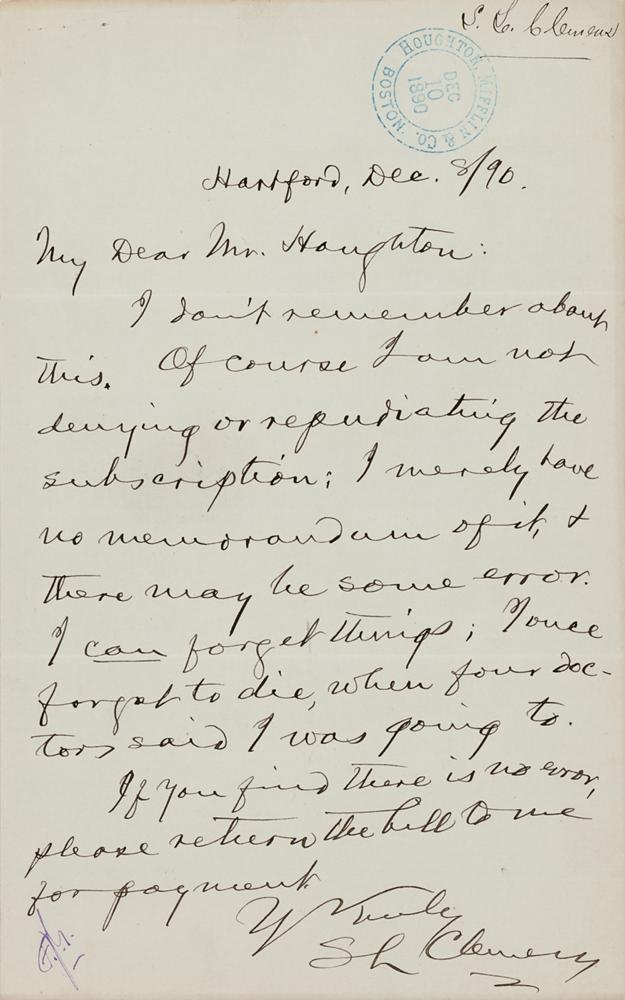 S. L. Clemens
HOUGHTON, MIFFLIN & CO. BOSTON.
DEC
10
1890
Hartford, Dec. 8/90.
My Dear Mr. Houghton:
I don't remember about
this. Of course I am not
denying or repudiating the
subscription; I merely have
no memorandum of it, &
there may be some error.
I can forget things; I once
forgot to die, when four doc-
tors said I was going to.
If you find there is no error,
please return the bill to me
for payment
Y Truly
S L Clemens